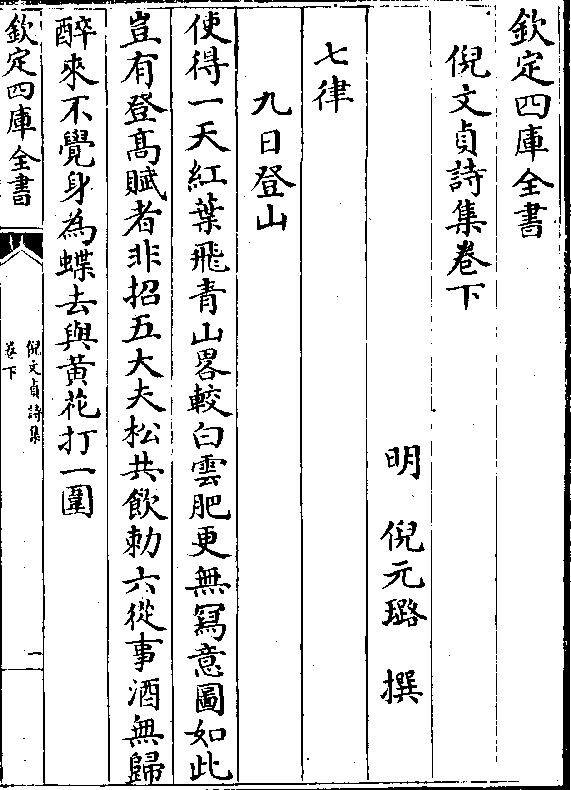 欽定四庫全書
倪文貞詩集卷下
明 倪元璐 撰
七律
九日登山
使得一天紅葉飛青山畧較白雲肥更無冩意圖如此
豈有登髙賦者非招五大夫松共飲勅六從事酒無歸
醉來不覺身為蝶去與黃花打一圍
欽定四庫全書
倪文貞詩集
卷下
一